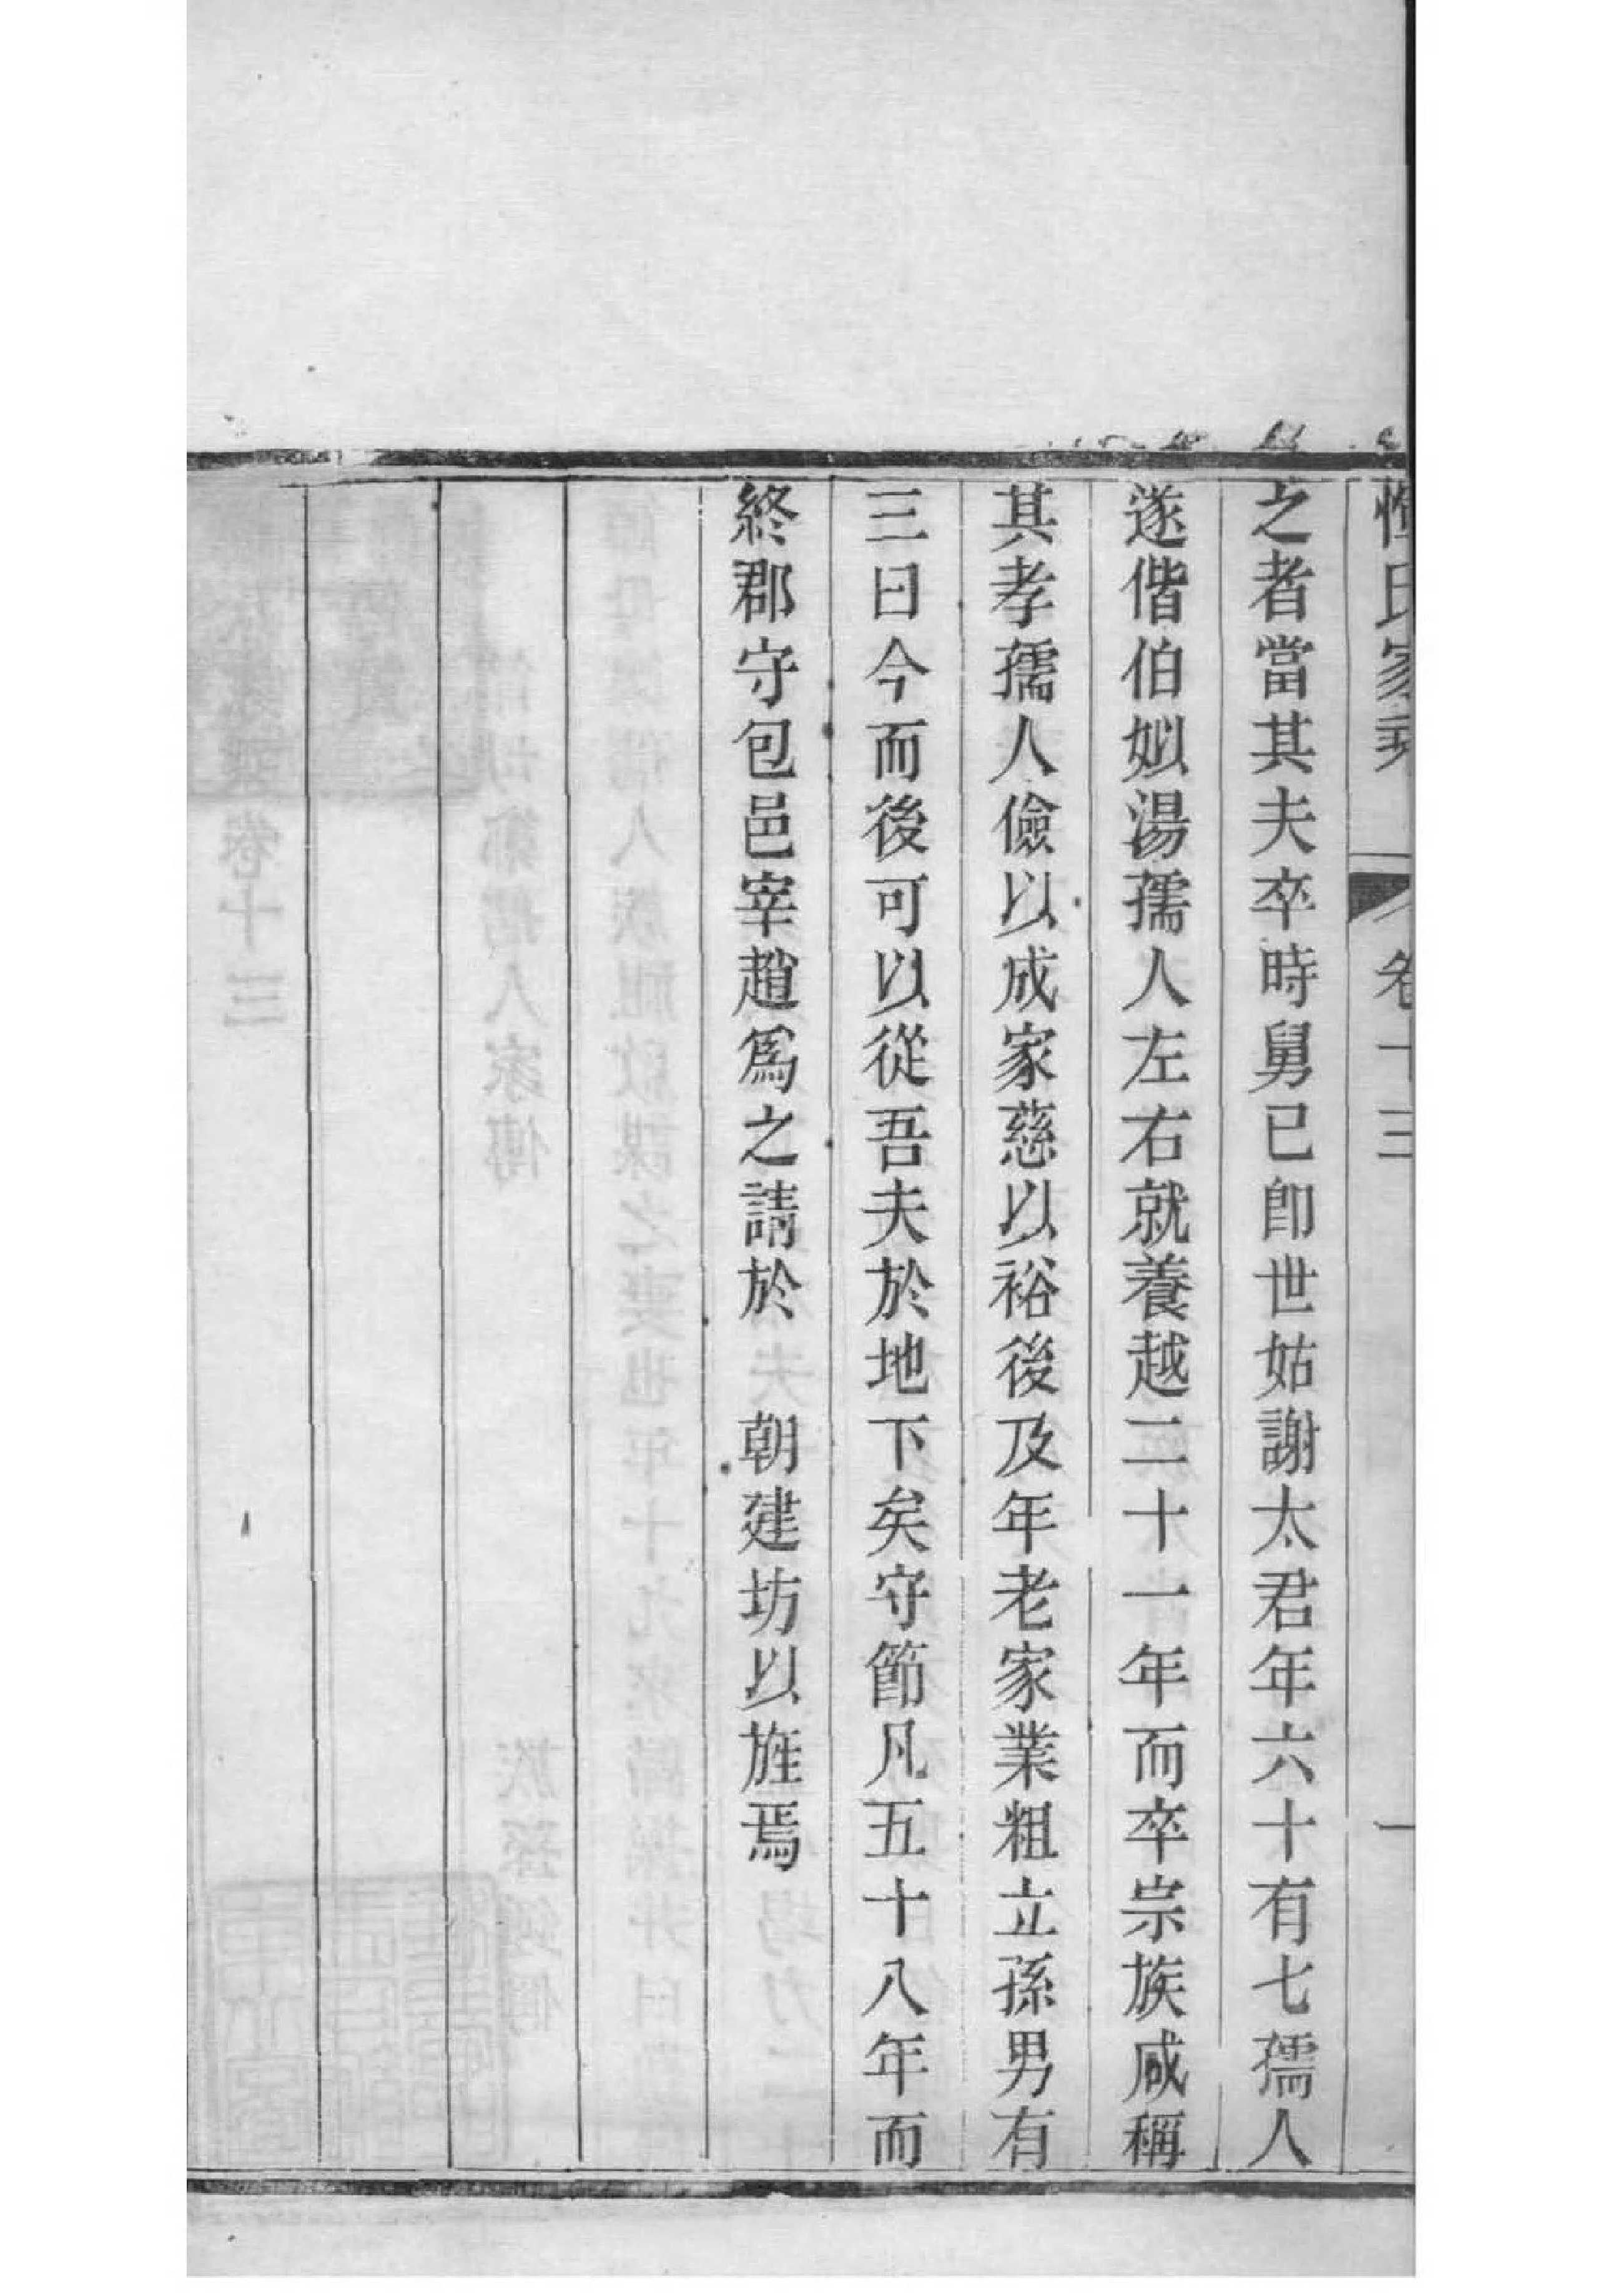 惲氏家乘 卷十三 一
之者當其夫卒時舅已卽世姑謝太君年六十有七孺人
遂偕伯姒湯孺人左右就養越二十一年而卒宗族咸稱
其孝孺人儉以成家慈以裕後及年老家業粗立孫男有
三曰今而後可以從吾夫於地下矣守節凡五十八年而
終郡守包邑宰趙爲之請於　朝建坊以旌焉